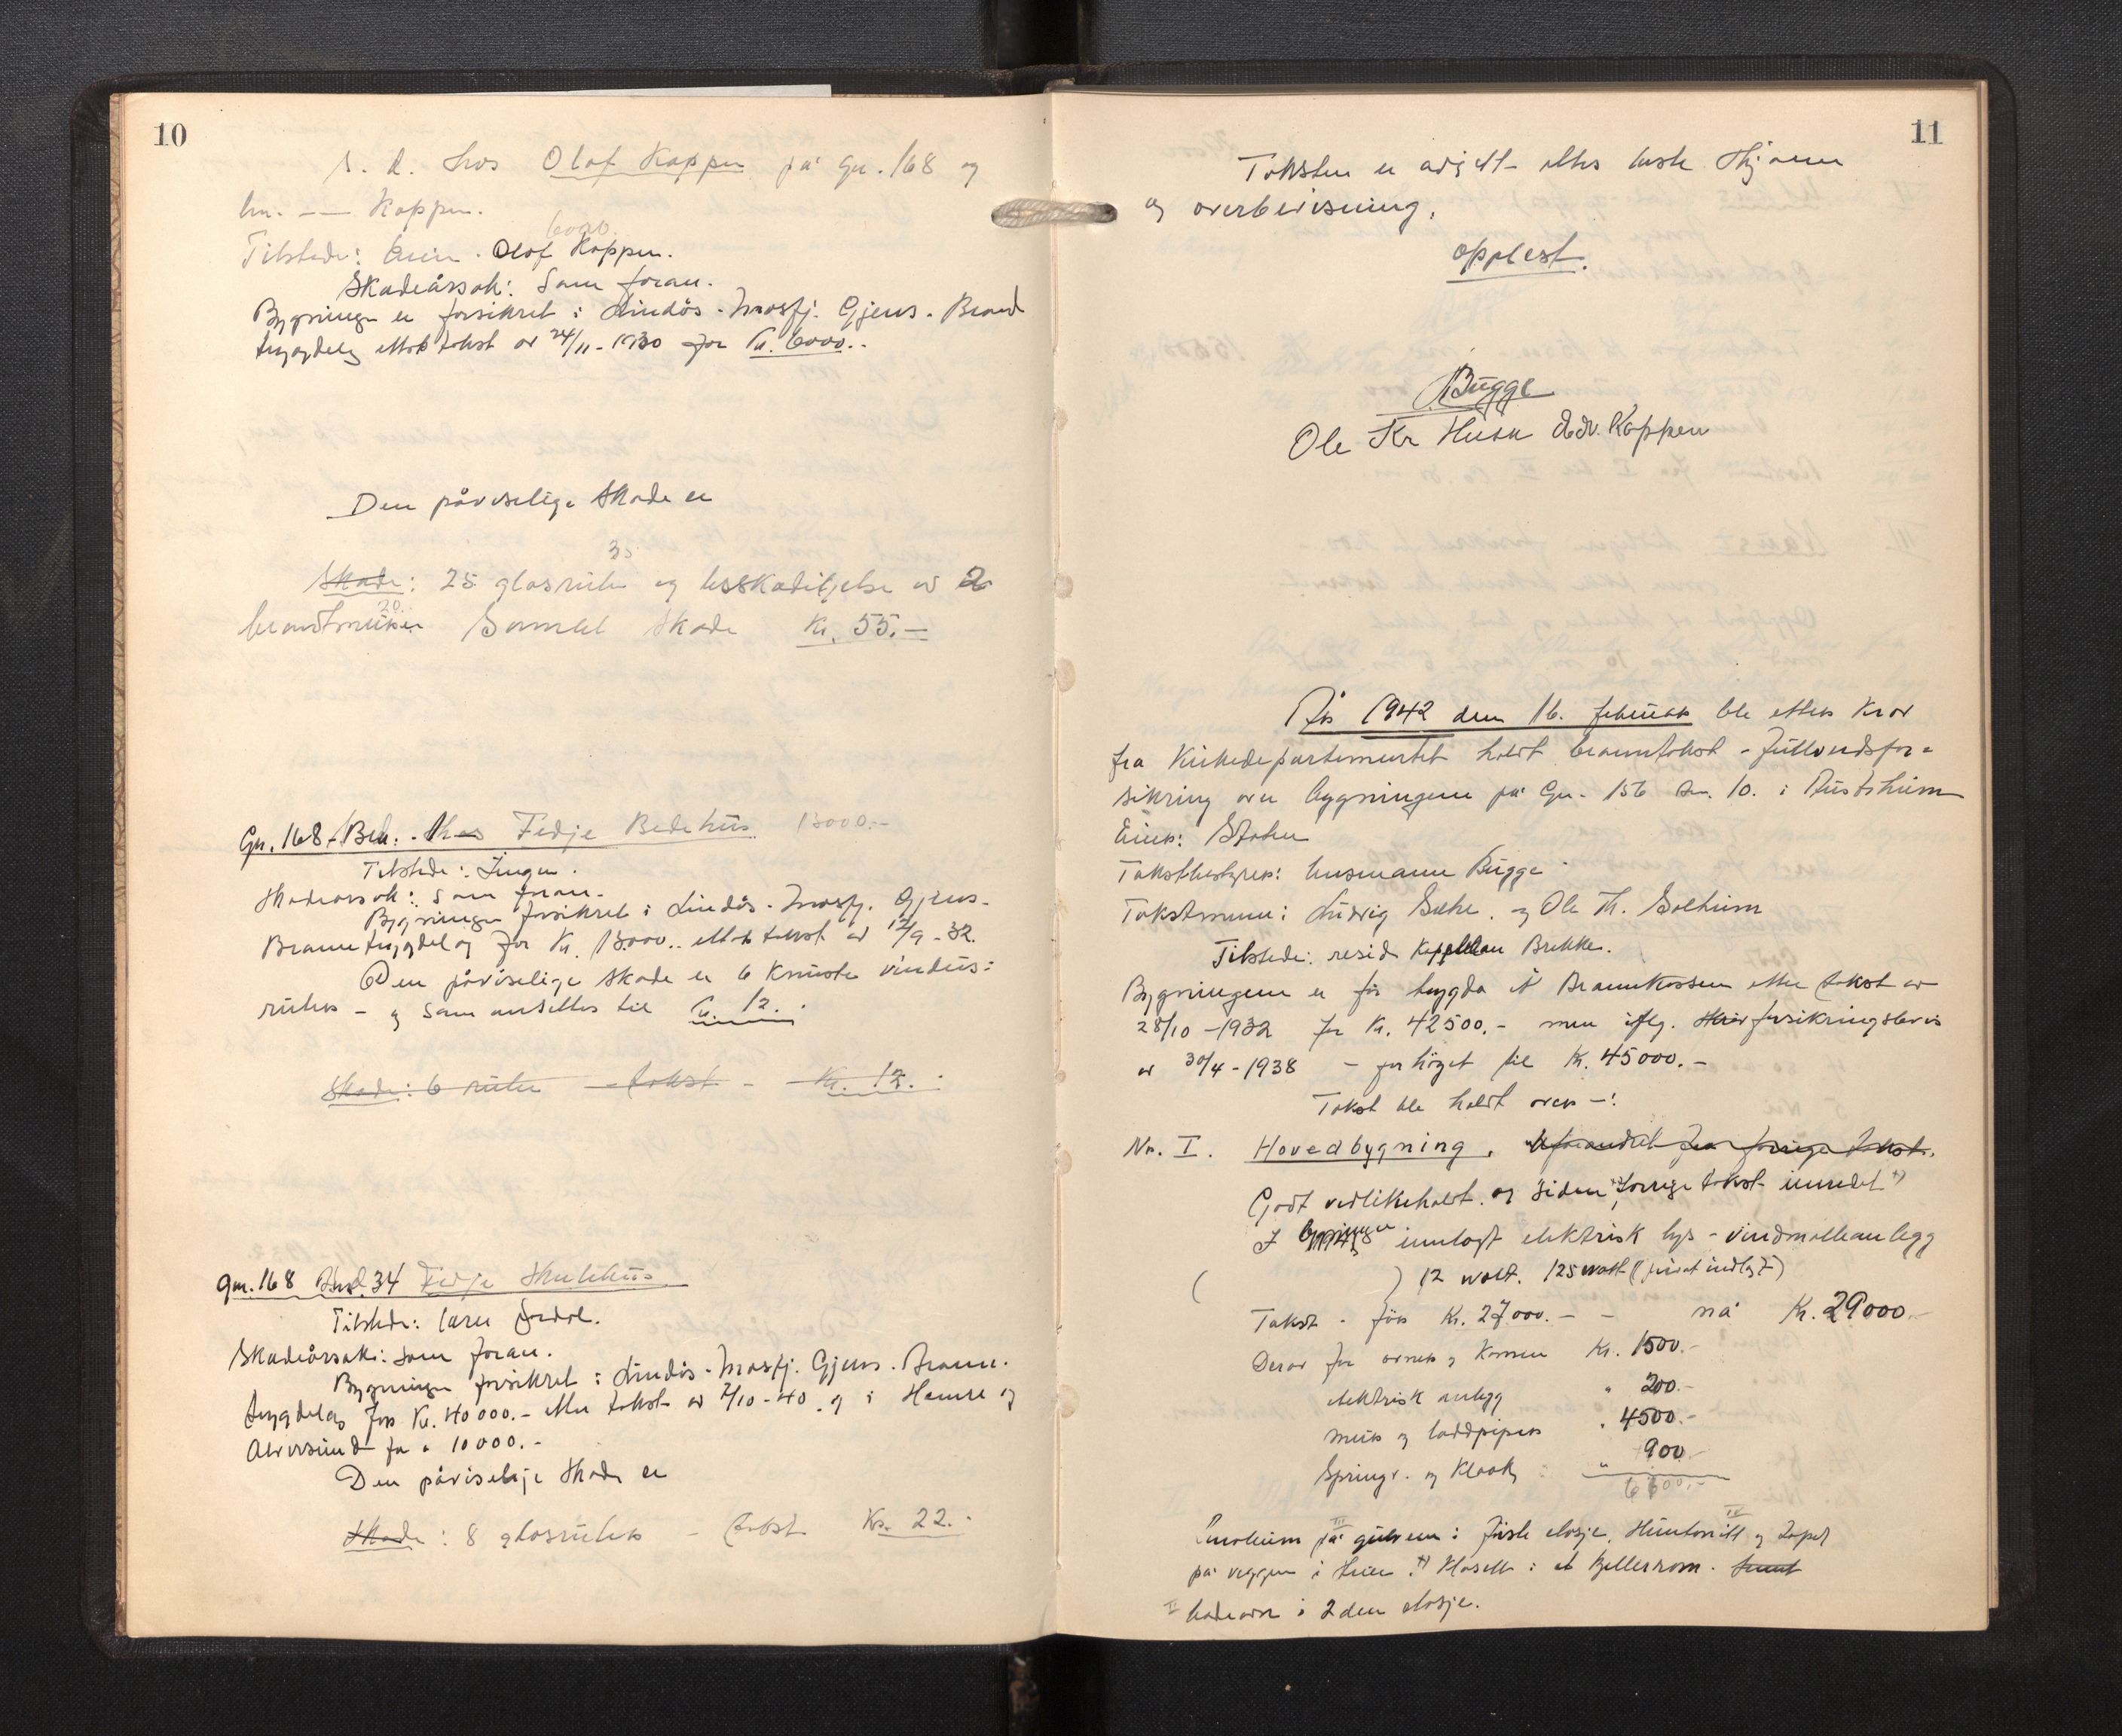 10
s. d. hos Olaf Koppen på gn. 168 og
bn. — Koppen.
6000.
Tilstede: Eier. Olaf Koppen.
Skadeårsak: Som foran.
Bygningen er forsikret i Lindås-Masfj. Gjens. Brand
trygdelag etter takst av 24/11-1930 for Kr. 6000..
Den påviselige skade er
35
Skade: 25 glasruter og beskadigelse av 2
20.
brandmurer Samlet skade Kr. 55.–
Gn. 168 - Bn. . Fedje Bedehus 13000.–
Tilstede: Ingen.
Skadeårsak: Som foran.
Bygningen forsikret i Lindås-Masfj. Gjens.
Branntrygdelag for Kr. 13000.. etter takst av 12/9-32.
Den påviselige skade er 6 knuste vindus=
ruter – og som ansettes til Kr. 12.
Skade: 6 ruter – takst – Kr. 12.
gn. 168 34 Fedje Skulehus
Tilstede: lærer
Skadeårsak: Som foran.
Bygningen forsikret i Lindås-Masfj. Gjens. Brann.
trygdelag for Kr. 40000.– etter takst av 2/10-40 og i Hamre og
Alversund for " 10000.–
Den påviselige skade er
Skade: 8 glasruter – takst Kr. 22.–
11
Taksten er avgitt etter beste skjønn
og overbevisning.
Opplest.
Bugge
Ole Kr Husa Edv. Koppen
År 1942 den 16. februar ble etter krav
fra Kirkedepartementet holdt branntakst - fullverdsfor=
sikring over bygningene på Gn. 156 Bn. 10. i Austrheim
Eier: Staten
Takstbestyrer: lensmann Bugge
Takstmenn: Ludvig Sæthe. og Ole Th. Solheim
Tilstede: resid. kapellan Brekke.
Bygningene er før trygda i Brannkassen etter takst av
28/10-1932 for Kr. 42500.– men iflg. forsikringsbevis
av 30/4-1938 – forhøyet til Kr. 45000.–
Takst ble holdt over –:
Nr. I. Hovedbygning. Uforandret fra forrige takst.
Godt vedlikeholdt. og siden forrige takst innredet
I bygningen innlagt elektrisk lys - vindmølleanlegg
( ) 12 volt. 125 watt (privat indlagt)
Takst - før Kr. 27000.– – nå Kr. 29000.–
Derav for ovner og komfur Kr. 1500.–
elektrisk anlegg " 200.–
murer og loddpiper " 4500.–
Springv. og Kloakk : " 900
6600.–
III IV
Linoleum på gulvene i første etasje. Huntonitt og tapet
på veggene i Klosett i et kjellerrom.
II badeovn i 2den etasje.